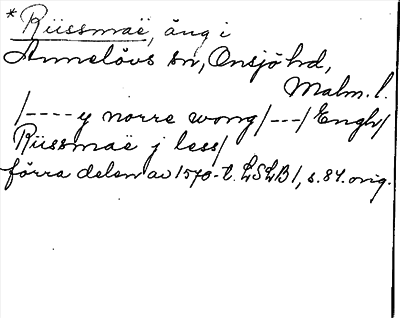 * Rüssmaë, äng i
Annelövs sn, Onsjö hd,
Malm. l.
/---- y norre wong/---/Engh/
Rüssmaë j less/
förra delen av 1570-t. LSLB1, s. 84. orig.